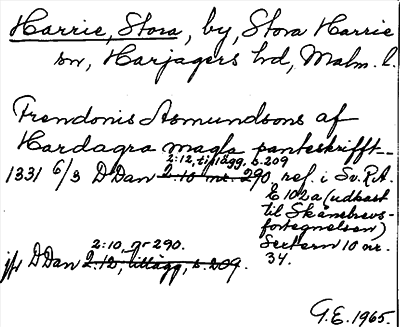 Harrie, Stora, by, Stora Harrie
sn, Harjagers hd, Malm. l.
Trendonis Asmundsons af
Hardagra magla panteskrifft
2:12, tillägg, s. 209
1331 6/3 DDan 2:10 nr. 290 ref. i Sv.R.A.
E 102a (udkast
til Skånebrevs-
fortegnelsen)
Sextern 10 nr.
34.
2:10, nr 290.
jfr DDan 2:12, tillägg, s. 209.
G.E. 1965.